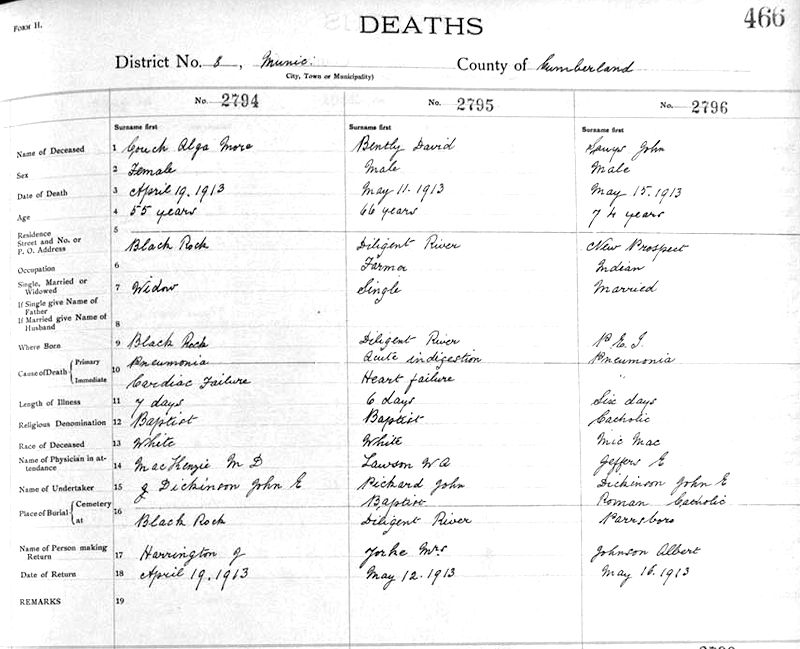 FORM H.
DEATHS
466
District No. 8, Munic: County of Cumberland
City, Town or Municipality)
No. 2794 No. 2795 No. 2796
Surname first Surname first Surname first
Name of Deceased 1 Couch Alga More Bently David John
Sex 2 Female Male Male
Date of Death 3 April 19. 1913 May 11. 1913 May 15. 1913
Age 4 55 years 66 years 74 years
Residence
Street and No. or 5
P. O. Address Black Rock Diligent River New Prospect
Occupation 6 Farmer Indian
Single, Married or
Widowed 7 Widow Single Married
If Single give Name of
Father
If Married give Name of
Husband 8
Where Born 9 Black Rock Diligent River P. E. I.
Cause of Death { Primary 10 Pneumonia Acute indigestion Pneumonia
Immediate Cardiac Failure Heart failure "
Length of Illness 11 7 days 6 days Six days
Religious Denomination 12 Baptist Baptist Catholic
Race of Deceased 13 White White Mic Mac
Name of Physician in at-
tendance 14 MacKenzie M D Lawson W A Jeffers E
Name of Undertaker 15 Dickinson John E Pickard John Dickinson John E
Place of Burial { Cemetery 16 Baptist Roman Catholic
at Black Rock Diligent River Parrsboro
Name of Person making
Return 17 Harrington J Yorke Mrs Johnson Albert
Date of Return 18 April 19. 1913 May 12. 1913 May 16. 1913
REMARKS 19